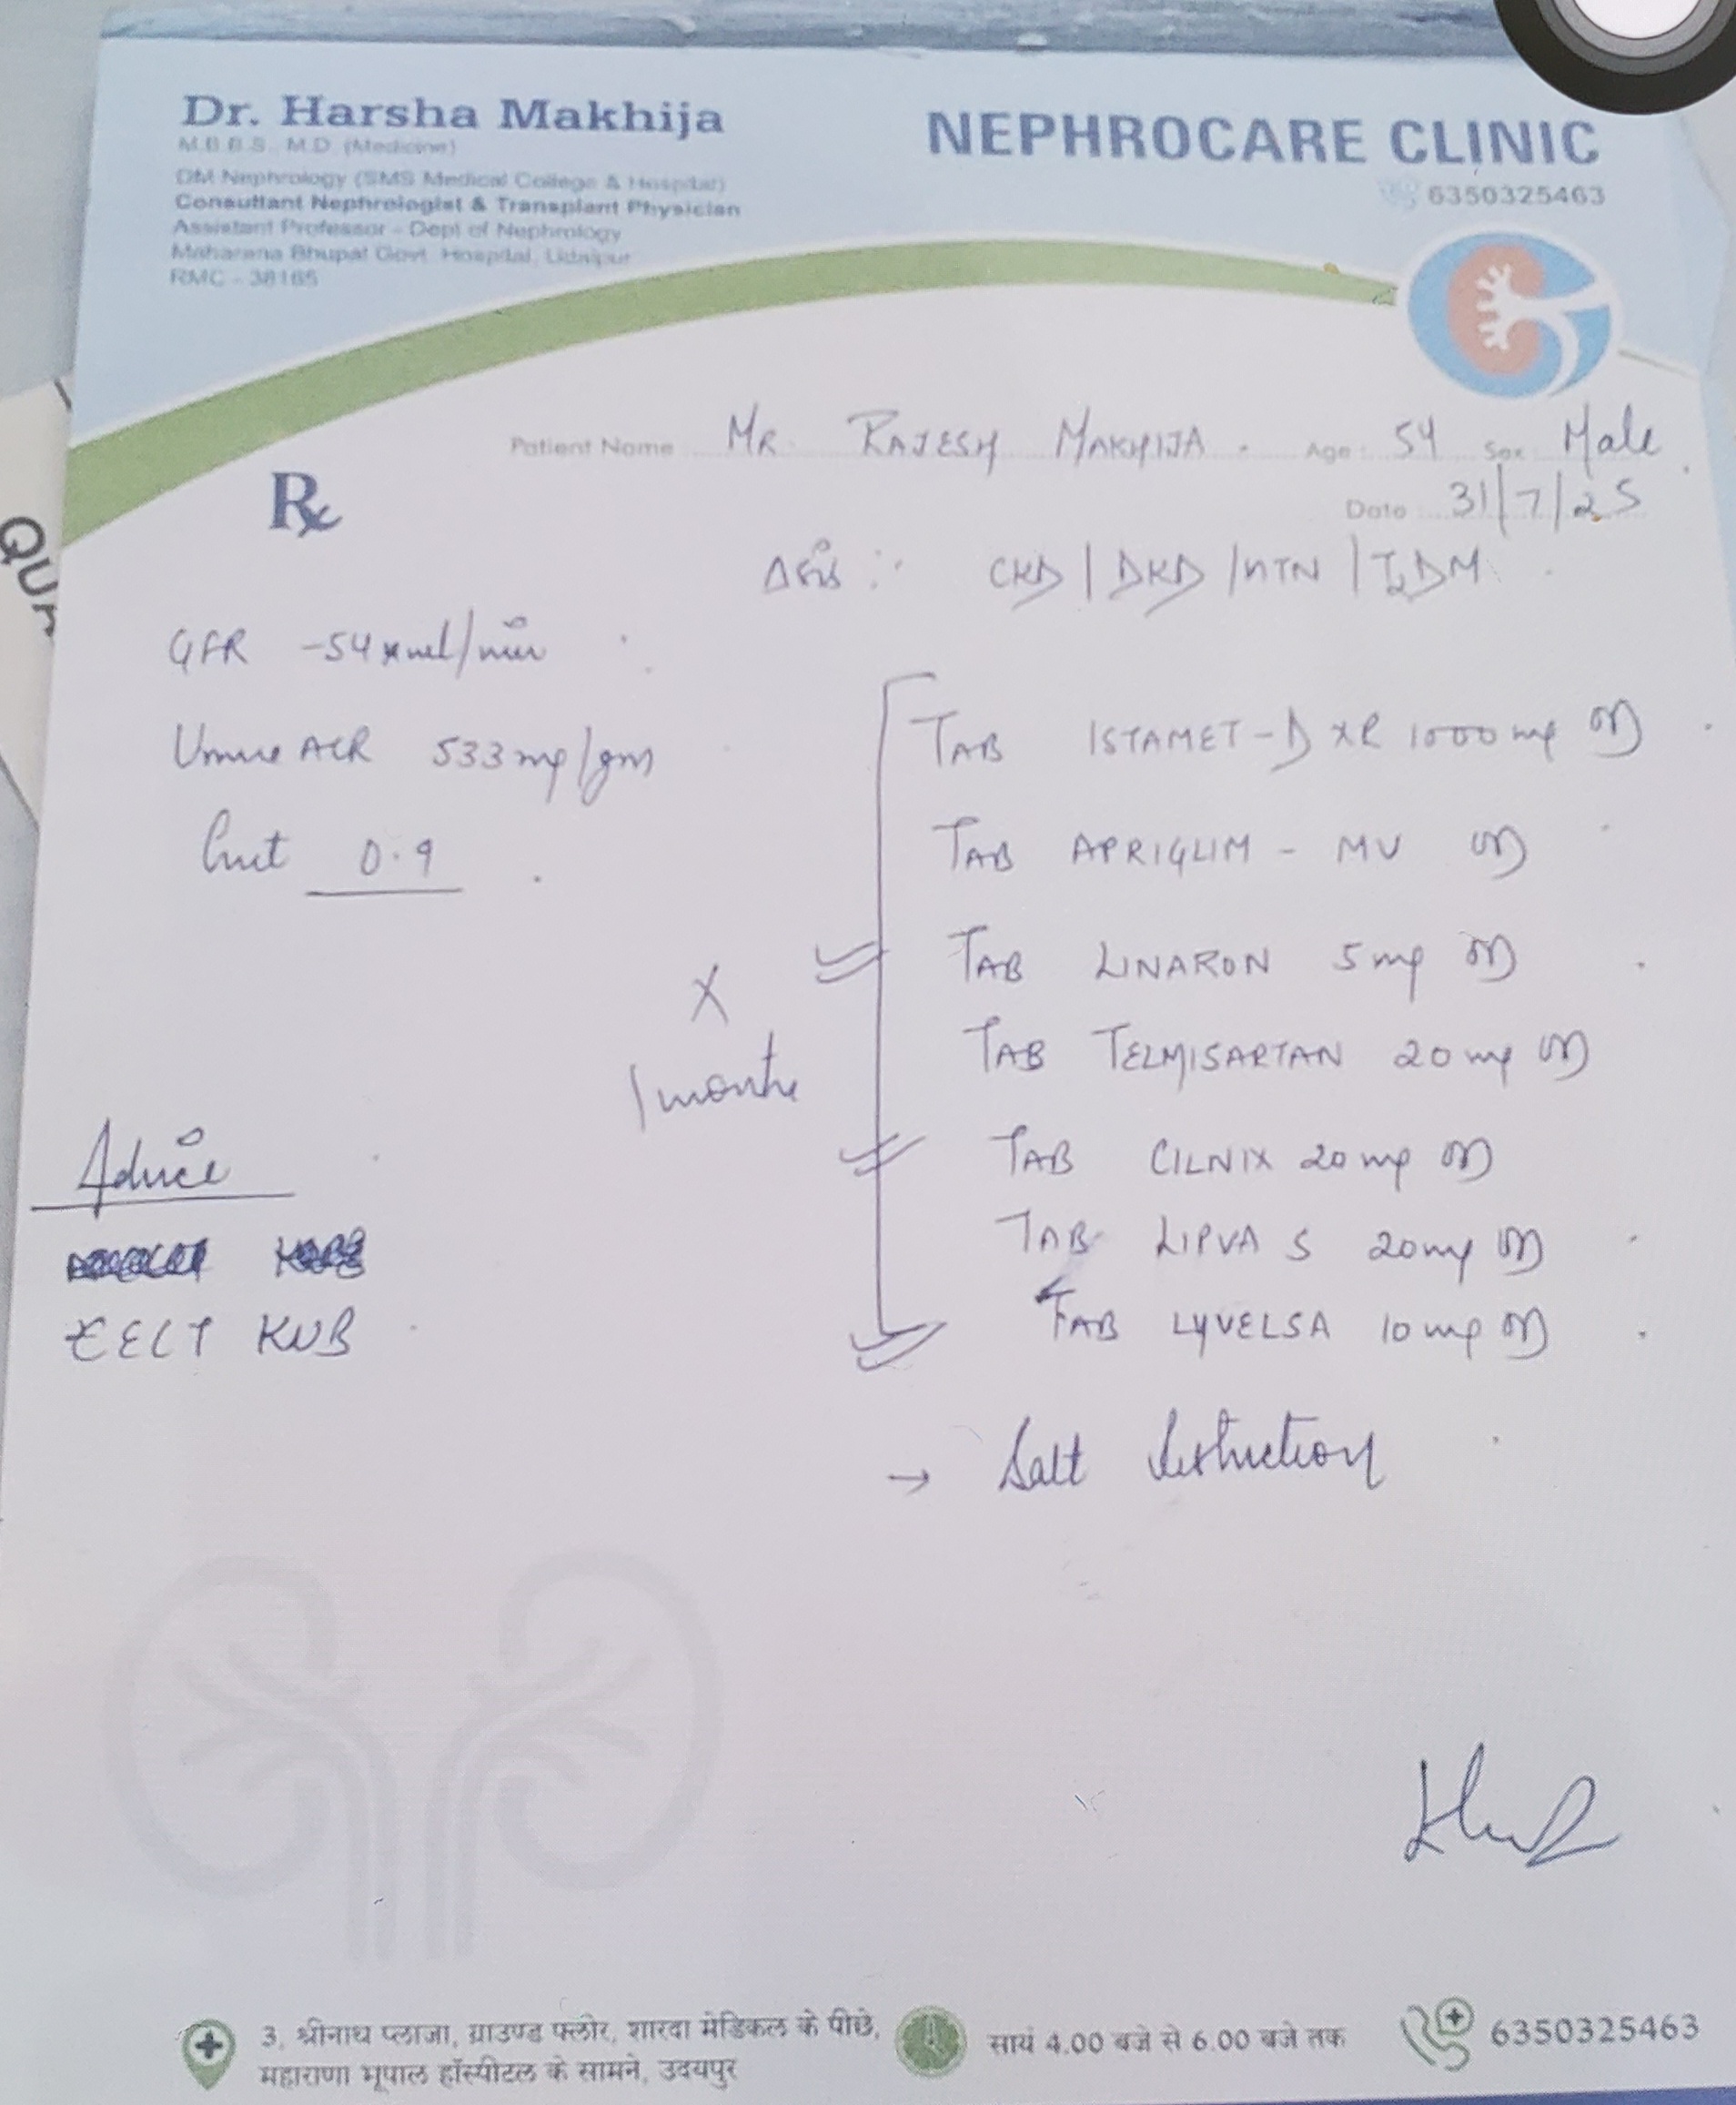 Dr. Harsha Makhija
M.B.B.S., M.D. (Medicine)
DM Nephrology (SMS Medical College & Hospital)
Consultant Nephrologist & Transplant Physician
Assistant Professor - Dept of Nephrology
Maharana Bhupal Govt. Hospital, Udaipur
RMC - 38165
NEPHROCARE CLINIC
6350325463
QUA
Patient Name MR. RAJESH MAKHIJA. Age: 54 Sex Male
Date 31/7/25
Rx
CKD | DKD / HTN | T2DM
GFR - 54 ml/min
Urine ACR 533 mg/gm
0.9
TAB ISTAMET-D XR 1000 mg OD
TAB APRIGLIM - MV OD
TAB LINARON 5 mg OD
TAB TELMISARTAN 20 mg OD
TAB CILNIX 20 mg OD
TAB LIPVA S 20 mg OD
TAB LYVELSA 10 mg OD
X
1 month
→ Salt restriction
Advice
KUB
3, श्रीनाथ प्लाजा, ग्राउण्ड फ्लोर, शारदा मेडिकल के पीछे,
महाराणा भूपाल हॉस्पीटल के सामने, उदयपुर
सायं 4.00 बजे से 6.00 बजे तक
6350325463